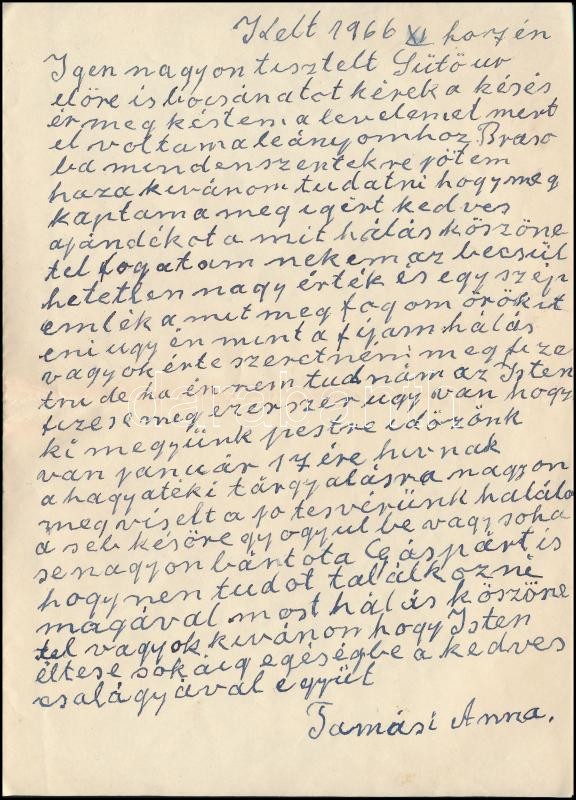 Kelt 1966 XI hó 7 én
Igen nagyon tisztelt Sütő ur
előre is bocsánatot kérek a késés
ér meg késtem a levelemet mert
el voltam a leányomhoz Braso
ba mindenszentekre jötem
haza kivánom tudatni hogy meg
kaptam a meg igért kedves
ajándékot a mit hálás köszöne
tel fogatam nekem az becsül
hetetlen nagy érték és egy szép
emlék a mit meg fogom örökit
eni ugy én mint a fijam hálás
vagyok érte szeretném meg fize
tni de ha én nem tudnám az Isten
fizese meg ezerszer ugy van hogy
ki megyünk pestre idözönk
van január 17 ére hivnak
a hagyatéki tárgyalásra nagyon
meg viselt a jo tesvérünk halála
a seb késöre gyogyul be vagy soha
se nagyon bántota Gáspárt is
hogy nen tudot találkozni
magával most hálás köszöne
tel vagyok kivánon hogy Isten
éltese sokáig egéségbe a kedves
csalágyával együt
Tamási Anna.
darabanth